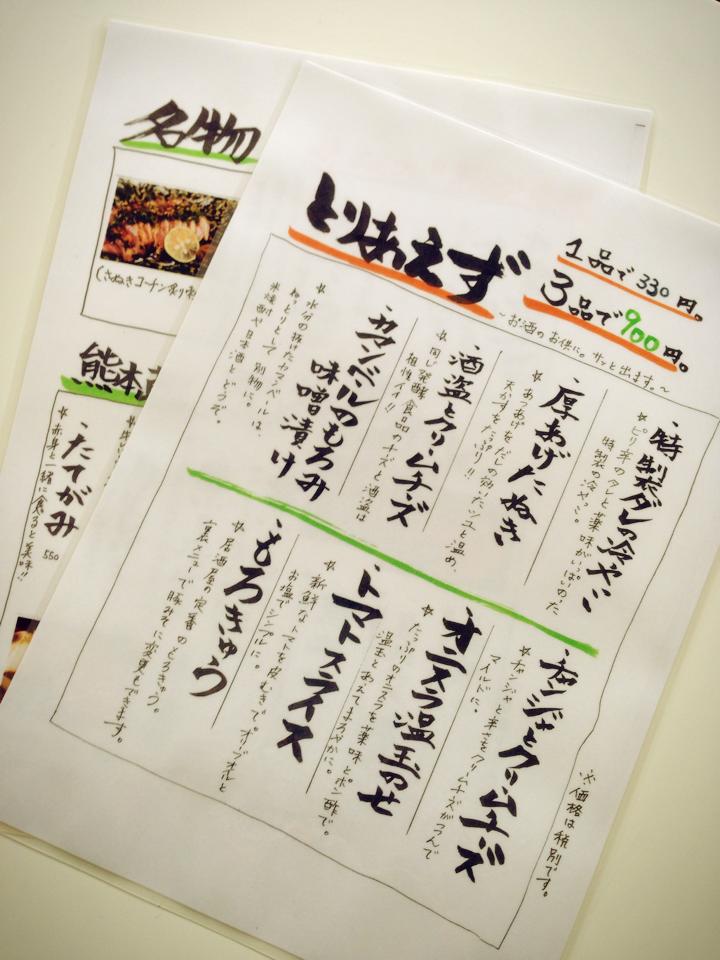 とりあえず
1品で330円。
3品で900円。
~お酒のお供に。サッと出ます。~
・特製ダレの冷やっこ
☆ピリ辛のタレと薬味がいっぱいのった
特製の冷やっこ。
・厚あげたぬき
☆あつあげをだしの効いたツユと温め、
天かすをたっぷり!!
・酒盗とクリームチーズ
☆同じ発酵食品のチーズと酒盗は
相性イイ!!
・カマンベールのもろみ
味噌漬け
☆水分の抜けたカマンベールは、
ねっとりとして別物に。
米焼酎や日本酒とどうぞ。
・チャンジャとクリームチーズ
☆チャンジャと辛さをクリームチーズがつつんで
マイルドに。
・オニスラ温玉のせ
☆たっぷりのオニスラを薬味とポン酢で。
温玉とあえてまろやかに。
・トマトスライス
☆新鮮なトマトを皮むきで。オリーブオイルと
お塩でシンプルに。
・もろきゅう
☆居酒屋の定番のもろきゅう。
裏メニューで豚みそに変更もできます。
※価格は税別です。
名物
(さぬきコーチン炙り
熊本
・たてがみ
550
☆赤身と一緒に食ると美味!!